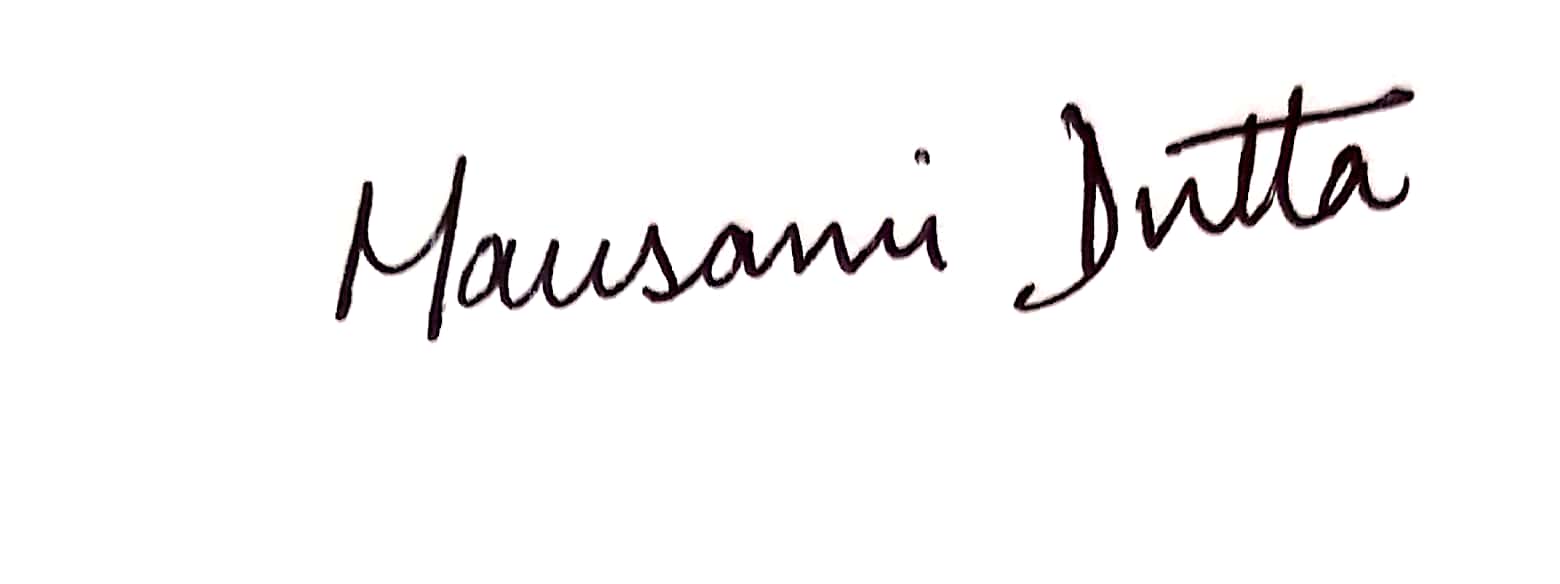 Mausami Dutta